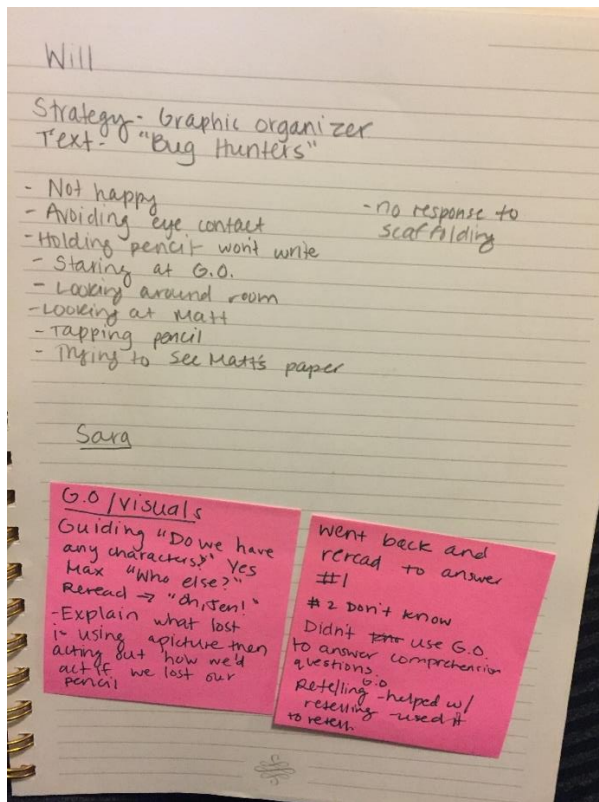 Will
Strategy- Graphic organizer
Text- "Bug Hunters"
- Not happy
- Avoiding eye contact
- Holding pencil won't write
- Staring at G.O.
- Looking around room
- Looking at Matt
- Tapping pencil
- Trying to see Matt's paper
- no response to
scaffolding
Sara
G.O/visuals
Guiding "Do we have
any characters?" Yes
Max "Who else?"
Reread → "Oh, Jen!"
- Explain what lost
is using a picture then
acting out how we'd
act if we lost our
pencil
Went back and
reread to answer
#1
#2 Don't know
Didn't use G.O.
to answer comprehension
questions
G.O
Retelling - helped w/
retelling - used it
to retell.